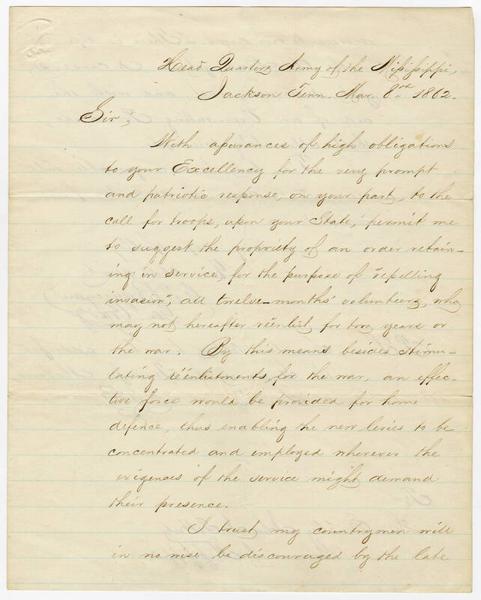 Head Quarters Army of the Mississippi,
Jackson Tenn. Mar. 8th 1862.
Sir,
With assurances of high obligations
to your Excellency for the very prompt
and patriotic response, on your part, to the
call for troops, upon your State, permit me
to suggest the propriety of an order retain-
ing in service, for the purpose of "repelling
invasion", all twelve-months' volunteers, who
may not hereafter reënlist for two years or
the war. By this means besides stimu-
lating reënlistments, for the war, an effec-
tive force would be provided for home
defence, thus enabling the new levies to be
concentrated and employed wherever the
exigences of the service might demand
their presence.
I trust my countrymen will
in no wise be discouraged by the late